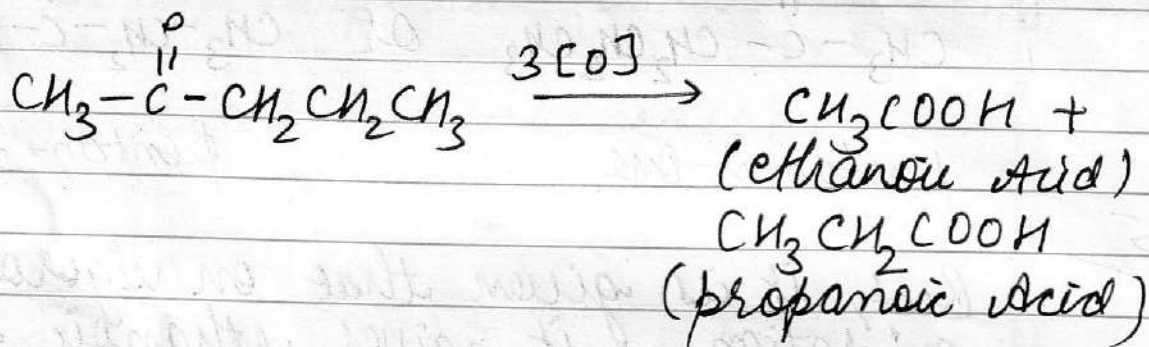 O
||
CH₃-C-CH₂CH₂CH₃ 3[O]⟶ CH₃COOH +
(ethanoic Acid)
CH₃CH₂COOH
(propanoic Acid)